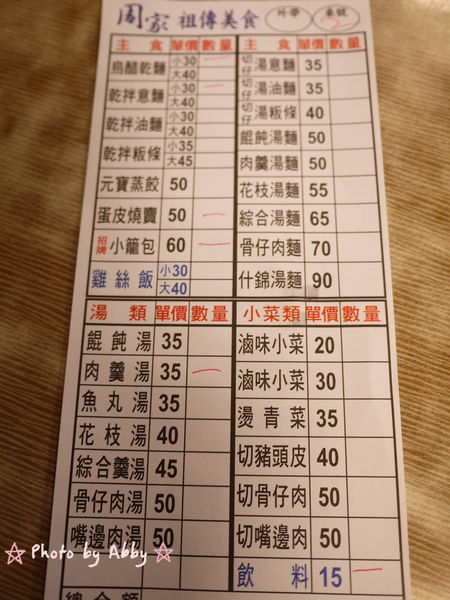 周家 祖傳美食 外帶 桌號 2
主食 單價 數量
烏醋乾麵 小30 大40 一
乾拌意麵 小30 大40 一
乾拌油麵 小30 大40
乾拌粄條 小35 大45
元寶蒸餃 50
蛋皮燒賣 50 一
招牌 小籠包 60 一
雞絲飯 小30 大40
主食 單價 數量
切仔 湯意麵 35
切仔 湯油麵 35
切仔 湯粄條 40
餛飩湯麵 50
肉羹湯麵 50
花枝湯麵 55
綜合湯麵 65
骨仔肉麵 70
什錦湯麵 90
湯類 單價 數量
餛飩湯 35
肉羹湯 35 一
魚丸湯 35
花枝湯 40
綜合羹湯 45
骨仔肉湯 50
嘴邊肉湯 50
小菜類 單價 數量
滷味小菜 20
滷味小菜 30
燙青菜 35
切豬頭皮 40
切骨仔肉 50
切嘴邊肉 50
飲料 15 一
總金額
☆ Photo by Abby ☆